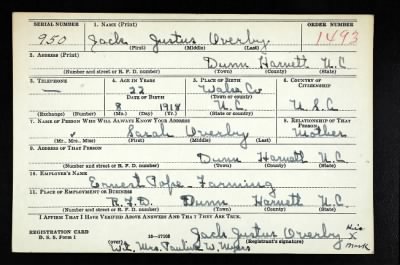 SERIAL NUMBER 1. NAME (Print) ORDER NUMBER
950 Jack Justus Overby 1493
(First) (Middle) (Last)
2. ADDRESS (Print)
Dunn Harnett N.C.
(Number and street or R. F. D. number) (Town) (County) (State)
3. TELEPHONE 4. AGE IN YEARS 5. PLACE OF BIRTH 6. COUNTRY OF CITIZENSHIP
— 22 Wake Co
DATE OF BIRTH (Town or county)
8 1918 N.C. U.S.A
(Exchange) (Number) (Mo.) (Day) (Yr.) (State or country)
7. NAME OF PERSON WHO WILL ALWAYS KNOW YOUR ADDRESS 8. RELATIONSHIP OF THAT PERSON
Sarah Overby Mother
(Mr., Mrs., Miss) (First) (Middle) (Last)
9. ADDRESS OF THAT PERSON
Dunn Harnett N.C
(Number and street or R. F. D. number) (Town) (County) (State)
10. EMPLOYER'S NAME
Ernest Pope - Farming
11. PLACE OF EMPLOYMENT OR BUSINESS
R.F.D. Dunn Harnett N.C.
(Number and street or R. F. D. number) (Town) (County) (State)
I AFFIRM THAT I HAVE VERIFIED ABOVE ANSWERS AND THAT THEY ARE TRUE.
REGISTRATION CARD
D. S. S. Form 1 (over) Jack Justus Overby His X Mark
(Registrant's signature)
Wit. Mrs. Pauline W. Myers